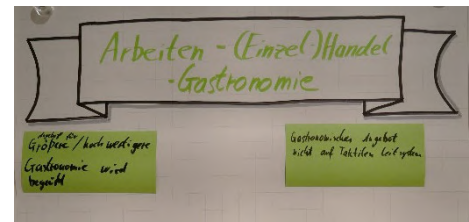 Arbeiten - (Einzel-)Handel
-Gastronomie
Angebot für
Größere / hochwertigere
Gastronomie wird
begrüßt
Gastronomisches Angebot
nicht auf Taktilen Leitsystem